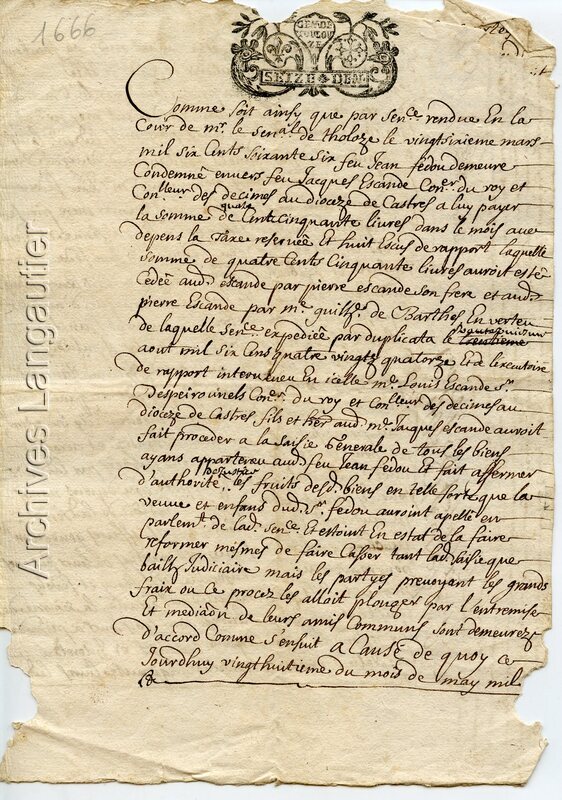 1666
GEN.DE
TOULOU
ZE
SEIZE DEN
Comme soit ainsy que par sen.ce rendue En la
Cour de mr. le sen.al de Tholoze le vingtsixieme mars
mil six Cents soixante six feu Jean fedou demeure
Condemné envers feu Jacques Escande Con.er du roy et
Con.lleur des decimes au dioceze de Castres a luy payer
quatre
la somme de Cents cinquante livres dans le mois avec
depens la Taxe reservée et huit Escus de rapport laquelle
somme de quatre Cents Cinquante livres auroit esté
Cedée aud. escande par pierre escande son frere et aud.
pierre Escande par me. guilh. de Barthes En verteu
de laquelle sen.ce expediée par duplicata le
aout mil six Cens quatre vingtz quatorze Et d'executoire
de rapport interveneu En icelle mr. Louis Escande sr.
Despeirounels Con.er du roy et Con.lleur des decimes au
dioceze de Castres fils et her. aud. mr. Jacques escande auroit
fait proceder a la saisie Generale de tous les biens
ayans apparteneu aud. feu Jean fedou et fait affermer
de justice
d'authorité les fruits desd. biens en telle sorte que la
veuve et enfans dud. sr. fedou auroint apellé en
parlem.t de lad. sen.ce Et estoint En estat de la faire
reformer mesmes de faire Casser tant lad. saisie que
bailh Judiciaire mais les partyes prevoyant les grands
fraix ou ce procez les alloit plonger par l'entremise
Et mediaôn de leurs amis Communs sont demeurez
D'accord Comme s'ensuit a Cause de quoy ce
Jourdhuy vingthuitieme du mois de may mil
Archives Langautier